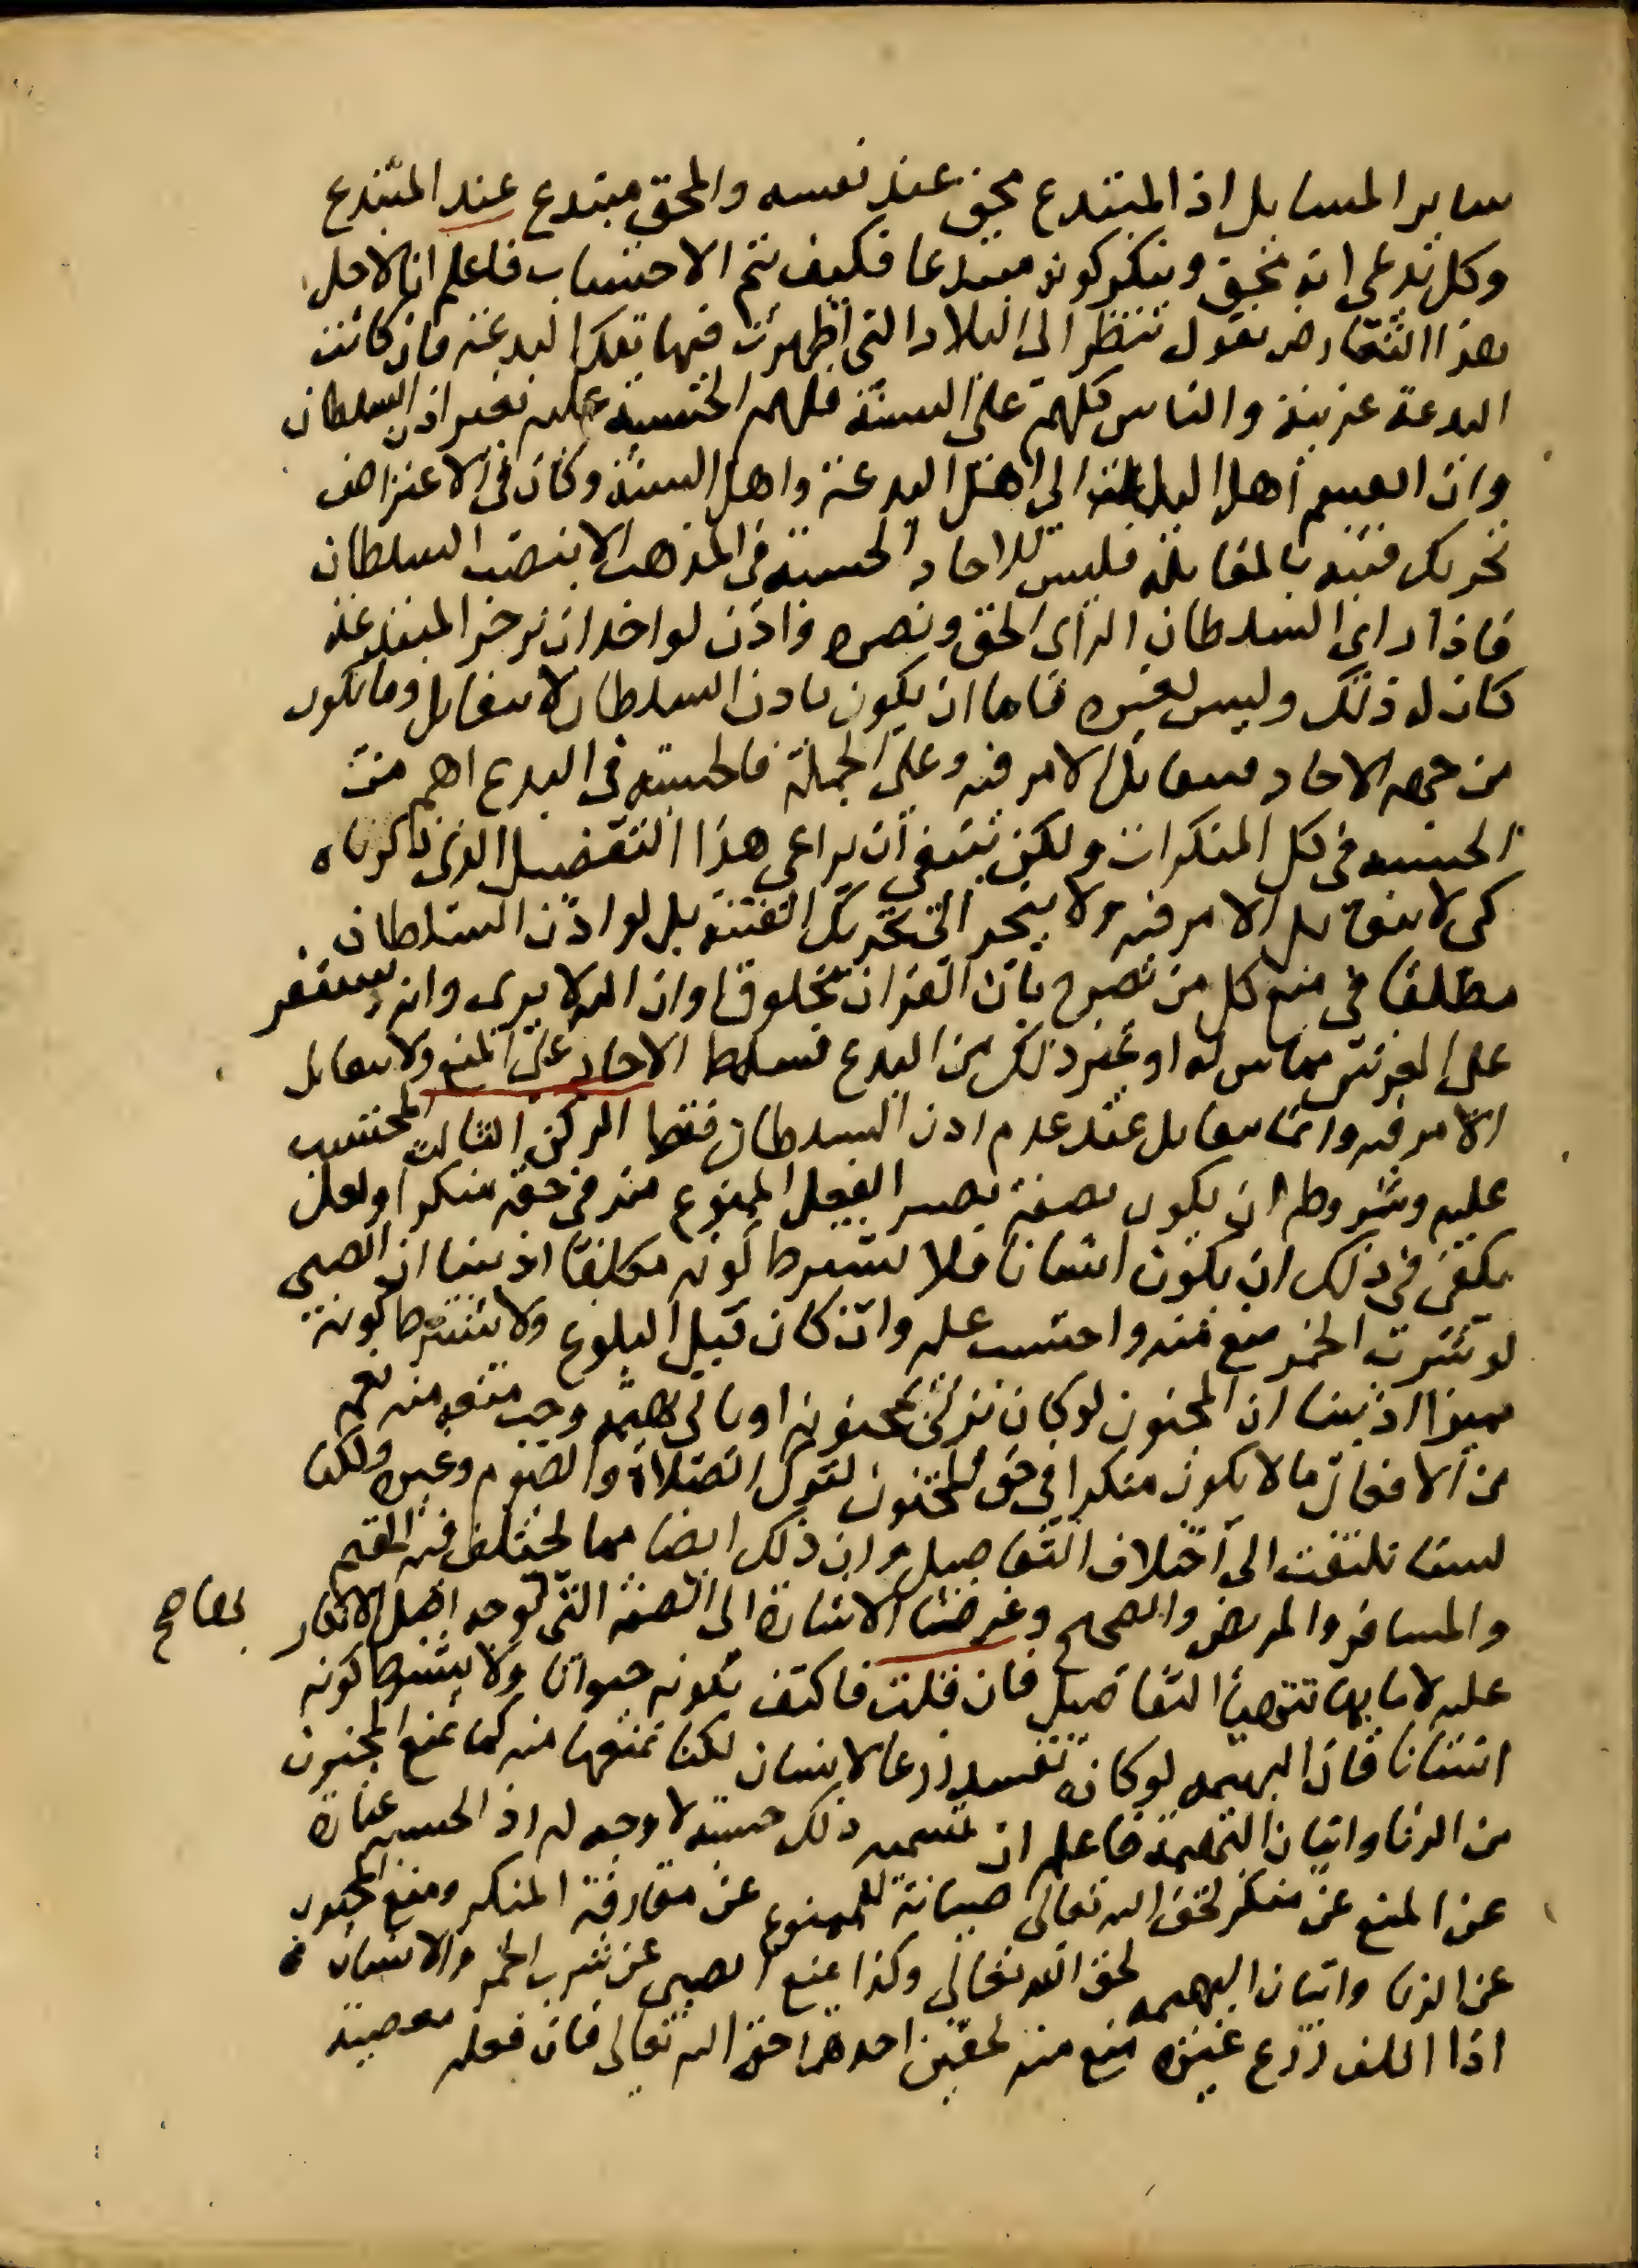 ساير المسايل اذ المبتدع محق عند نفسه والمحق مبتدع عند المبتدع
وكل يدعى انه محق وينكر كونه مبتدعا فكيف يتم الاحتساب فاعلم انا لاجل
هذا التعارض نقول ننظر الى البلاد التى اظهرت فيها تلك البدعة فان كانت
البدعة غريبة والناس كلهم على السنة فلهم الحسبة عليه بغير اذن السلطان
وان انقسم اهل البلد الى اهل البدعة واهل السنة وكان فى الاعتراض
تحريك فتنة بالمقابلة فليس للاحاد الحسبة فى المذهب الا بنصب السلطان
فاذا راى السلطان الراى الحق ونصره واذن لواحد ان يزجر المبتدعة
كان له ذلك وليس لغيره فاما ان يكون باذن السلطان لا يتقابل وما يكون
من جهه الاحاد فيتقابل الامر فيه وعلى الجملة فالحسبة فى البدع اهم من
الحسبه فى كل المنكرات ولكن ينبغى ان يراعى هذا التفصيل الذى ذكرناه
كى لا يتقابل الامر فيه ولا ينجر الى تحريك الفتنة بل لو اذن السلطان
مطلقا فى منع كل من يصرح بان القران مخلوق او ان الله لا يرى وانه مستقر
على العرش مماس له او غير ذلك من البدع فسلط الاحاد على المنع ولا يتقابل
الامر فيه وانما يتقابل عند عدم اذن السلطان فقط الركن الثالث المحتسب
عليه وشروطه ان يكون بصفة يصير الفعل الممنوع منه فى حقه منكرا ولعل
يكفى فى ذلك ان يكون انسانا فلا يشترط كونه مكلفا اذ بينا ان الصبى
لو شرب الخمر منع منه واحتسب عليه وان كان قبل البلوغ ولا يشترط كونه
مميزا اذ بينا ان المجنون لو كان يزنى بمجنونه او ياتى بهيمه وجب منعه منه نعم
من الافعال ما لا يكون منكرا فى حق المجنون لترك الصلاة والصوم وغيره ولكنا
لسنا نلتفت الى اختلاف التفاصيل وان ذلك ايضا مما يختلف فيه المقيم
والمسافر والمريض والصحيح وغرضنا الاشارة الى الصفة التى توجه اصل الانكار
عليه لا ما بها تتهيأ التفاصيل فان قلت فاكتف بكونه حيوانا ولا يشترط كونه
انسانا فان البهيمه لو كانت تفسد زرعا لانسان لكنا نمنعها منه كما نمنع المجنون
من الزنا واتيان البهيمة فاعلم ان تسميه ذلك حسبة لا وجه له اذ الحسبه عبارة
عن المنع عن منكر لحق الله تعالى صيانة للممنوع عن مقارفة المنكر ومنع المجنون
عن الزنا واتيان البهيمه لحق الله تعالى وكذا منع الصبى عن شرب الخمر والانسان
اذا اتلف زرع غيره منع منه لحقين احدهما حق الله تعالى فان فعله معصية